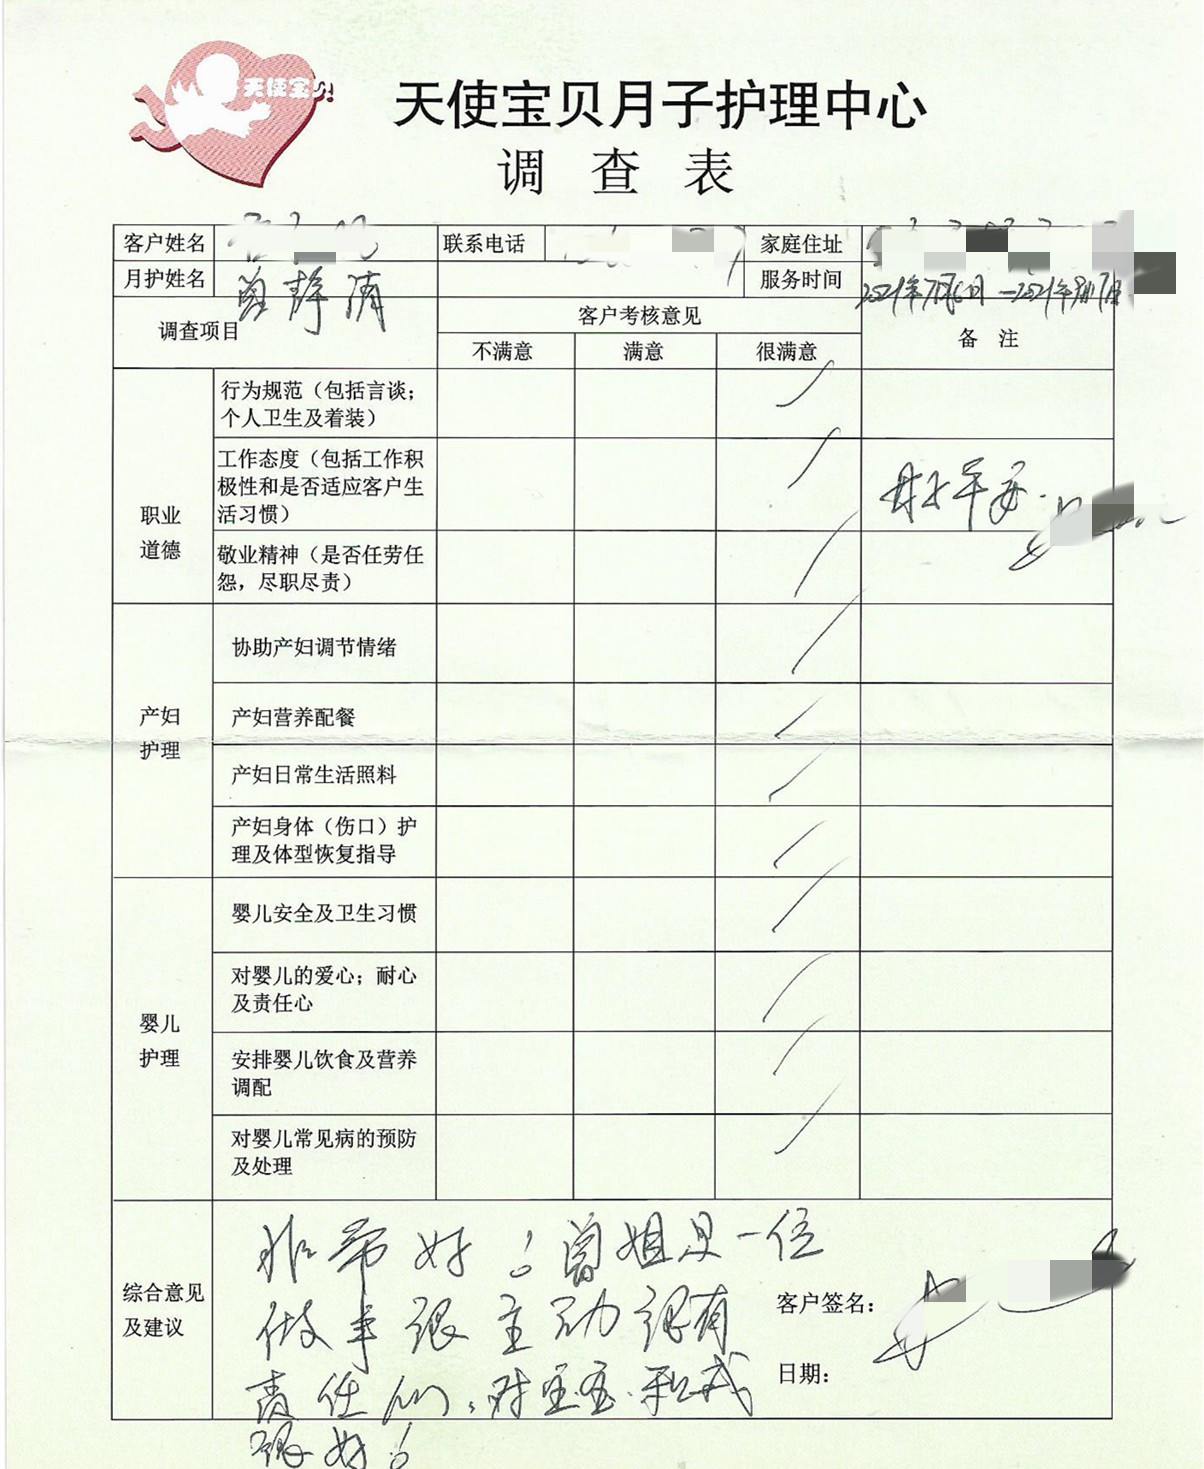 天使宝贝
天使宝贝月子护理中心
调 查 表
客户姓名 联系电话 家庭住址
月护姓名 曾静清 服务时间 2021年7月6日—2021年
调查项目 客户考核意见 备 注
不满意 满意 很满意
职业
道德
行为规范（包括言谈；
个人卫生及着装）
工作态度（包括工作积
极性和是否适应客户生
活习惯）
敬业精神（是否任劳任
怨，尽职尽责）
平安
产妇
护理
协助产妇调节情绪
产妇营养配餐
产妇日常生活照料
产妇身体（伤口）护
理及体型恢复指导
婴儿
护理
婴儿安全及卫生习惯
对婴儿的爱心；耐心
及责任心
安排婴儿饮食及营养
调配
对婴儿常见病的预防
及处理
综合意见
及建议
非常好！曾姐是一位
做事很主动很有
责任心，对宝宝和我
很好！
客户签名：
日期：